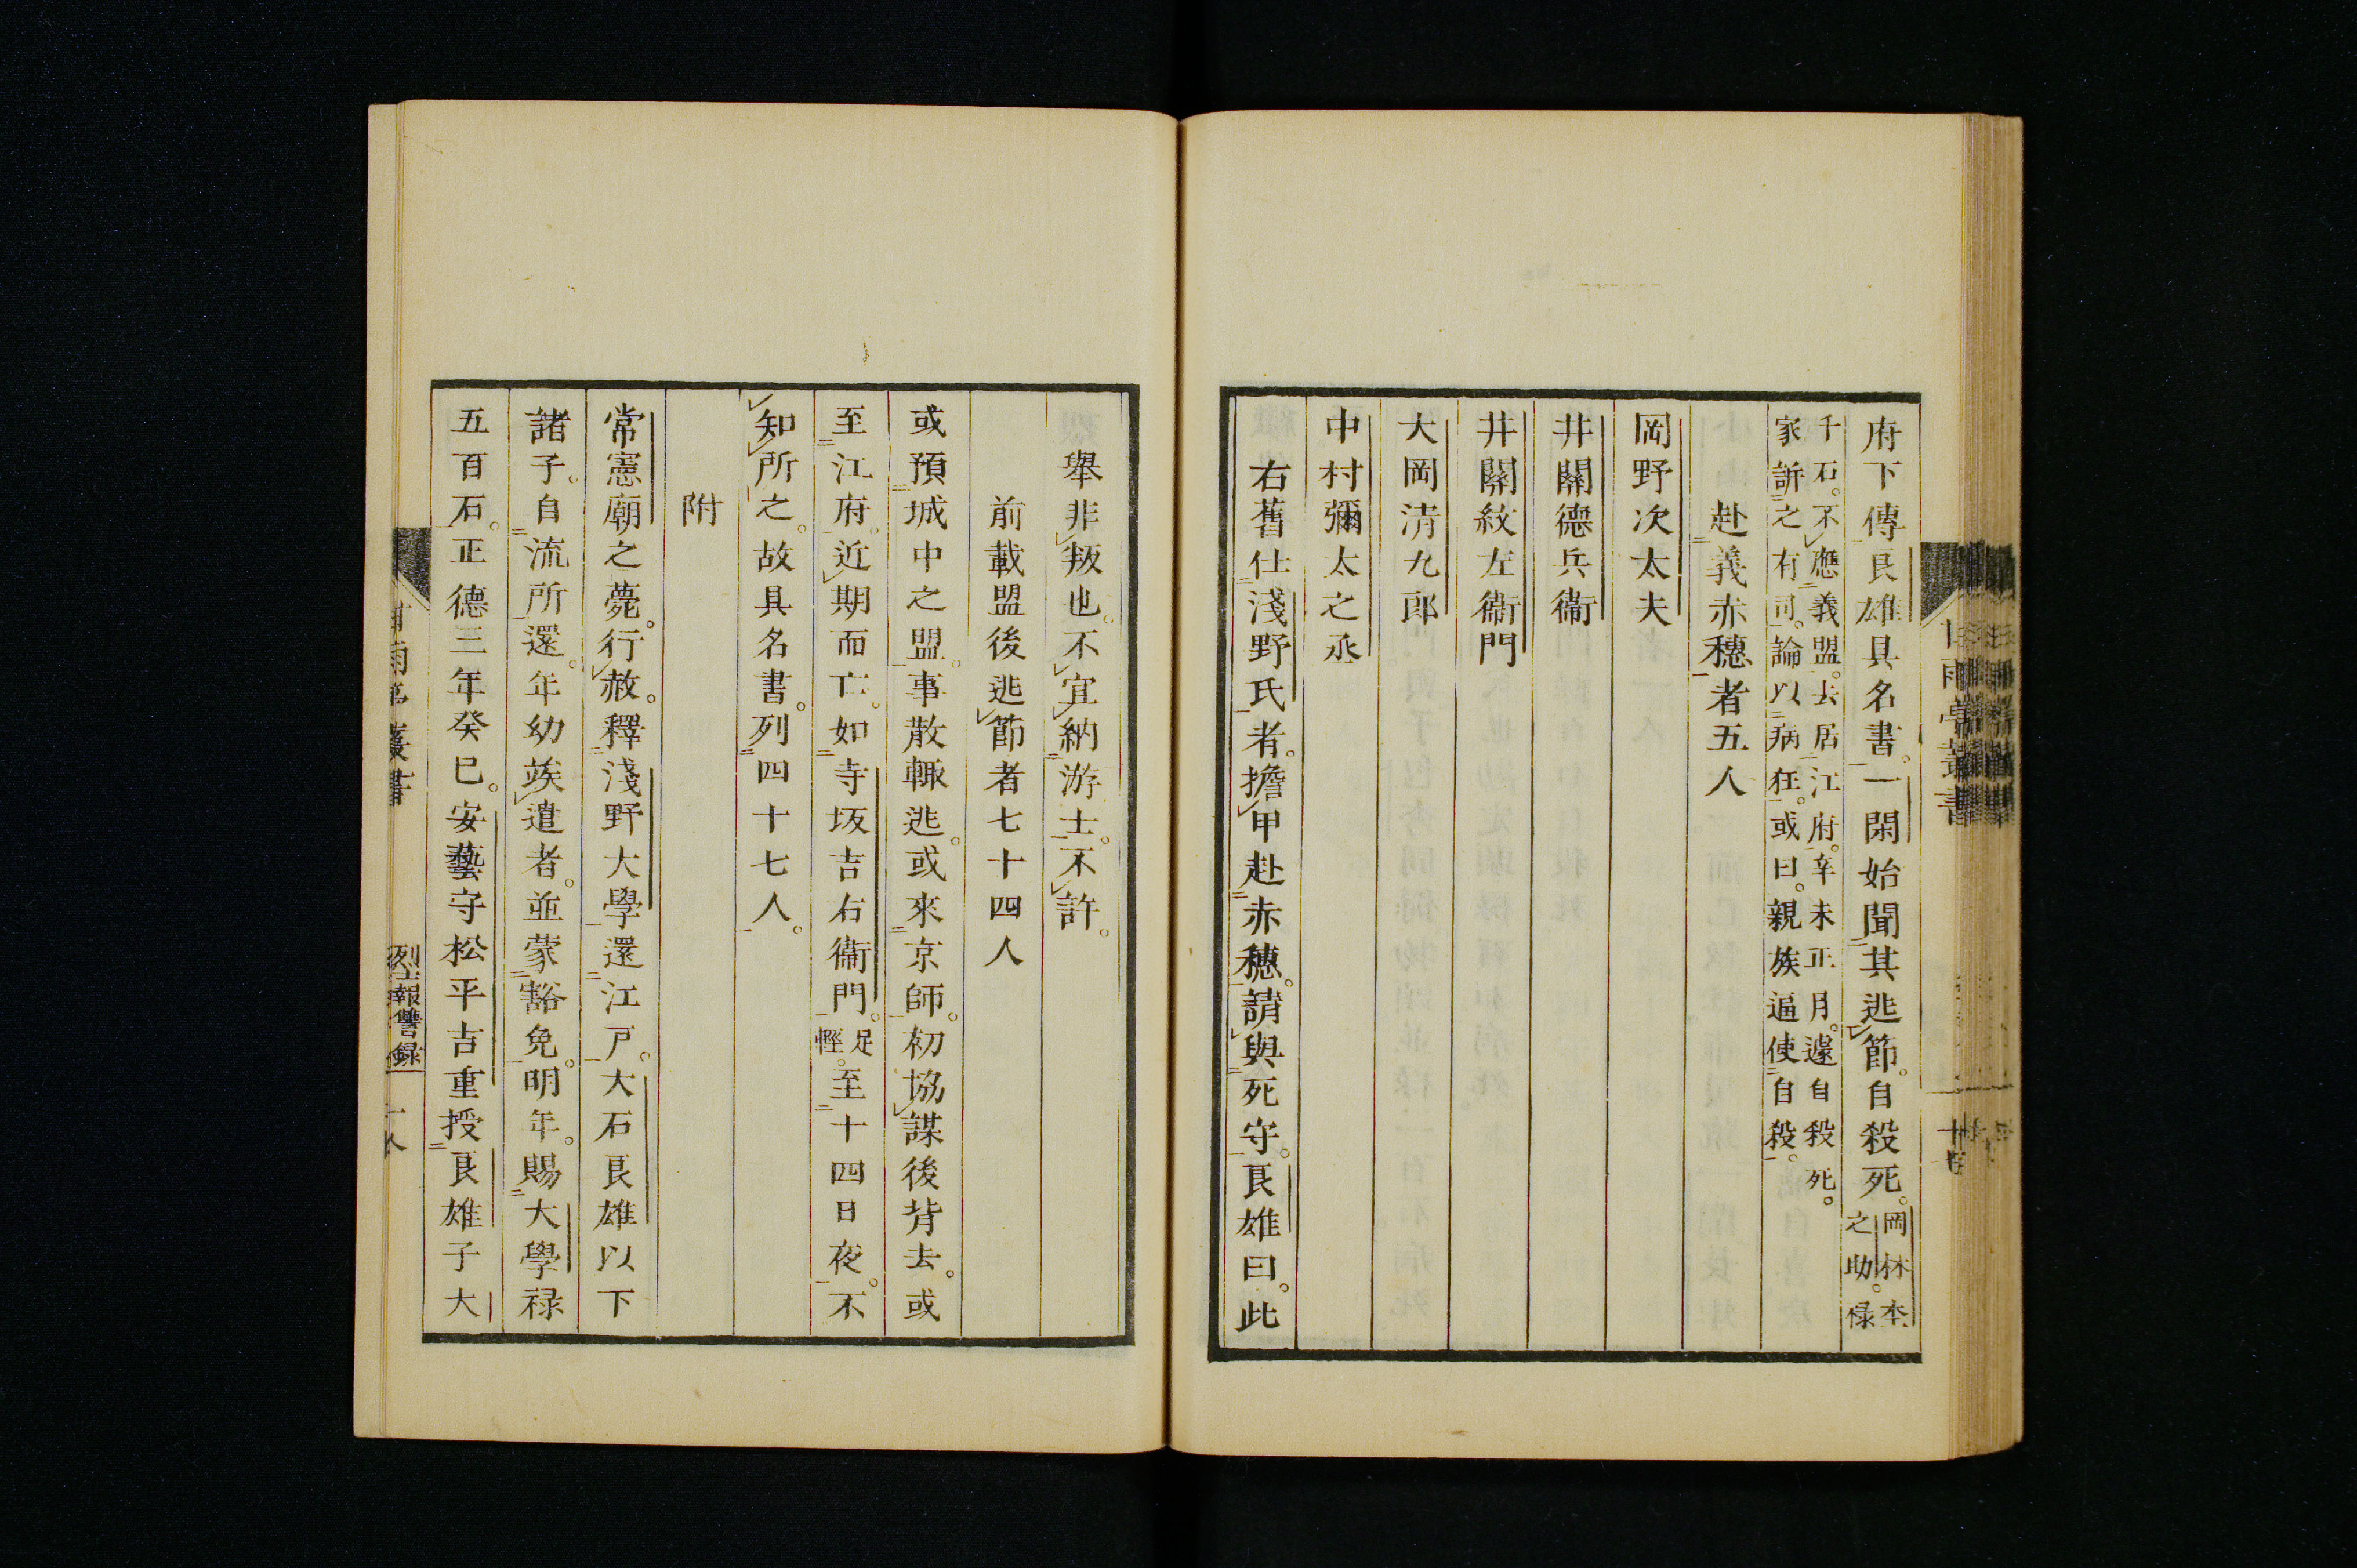 府下傳良雄具名書。一閑始聞其逃節。自殺死。岡林杢之助。禄
千石。不應義盟。去居江府。辛未正月。遽自殺死。
家訴之有司。論以病狂。或曰。親族逼使自殺。
赴義赤穗者五人
岡野次太夫
井關德兵衞
井關紋左衞門
大岡淸九郎
中村彌太之丞
右舊仕淺野氏者。擔甲赴赤穗。請與死守。良雄曰。此
舉非叛也。不宜納游士。不許。
前載盟後逃節者七十四人
或預城中之盟。事散輙逃。或來京師。初協謀後背去。或
至江府。近期而亡。如寺坂吉右衞門。足輕。至十四日夜。不
知所之。故具名書。列四十七人。
附
常憲廟之薨。行赦。釋淺野大學還江戸。大石良雄以下
諸子。自流所還。年幼竢遣者。並蒙豁免。明年。賜大學禄
五百石。正德三年癸巳。安藝守松平吉重授良雄子大
甘雨亭叢書
烈士報讐録